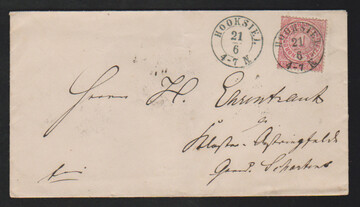 HOOKSIEL
21
6
4-7 N.
HOOKSIEL
21
6
4-7 N.
Herrn H. Ehrentraut
zu
Kloster-Oestringfelde
Gem. Schortens